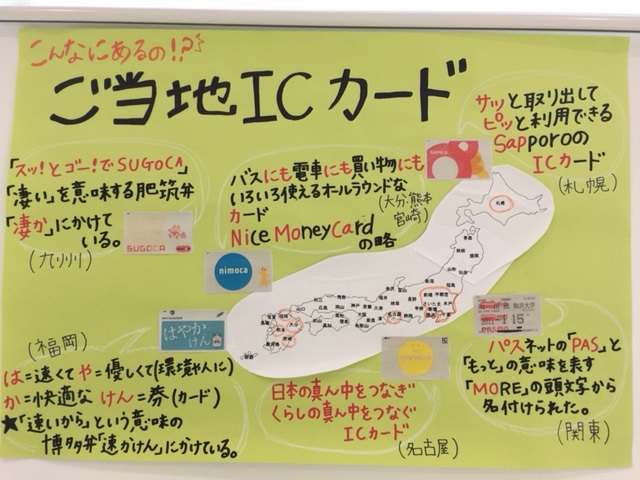 こんなにあるの!?
ご当地ICカード
「スッ!とゴー!でSUGOCA」
「凄い」を意味する肥筑弁
「凄か」にかけて
いる。
(九州)
SUGOCA
バスにも電車にも買い物にも
いろいろ使えるオールラウンドな
カード
(大分・熊本
宮崎)
Nice Money Cardの略
nimoca
サッと取り出して
ピッと利用できる
Sapporoの
ICカード
(札幌)
札幌
(福岡)
はやか
けん
は=速くてや=優しくて(環境や人に)
か=快適な けん=券(カード)
★「速いから」という意味の
博多弁「速かけん」にかけている。
日本の真ん中をつなぎ
くらしの真ん中をつなぐ
ICカード
(名古屋)
パスネットの「PAS」と
「もっと」の意味を表す
「MORE」の頭文字から
名付けられた。
(関東)